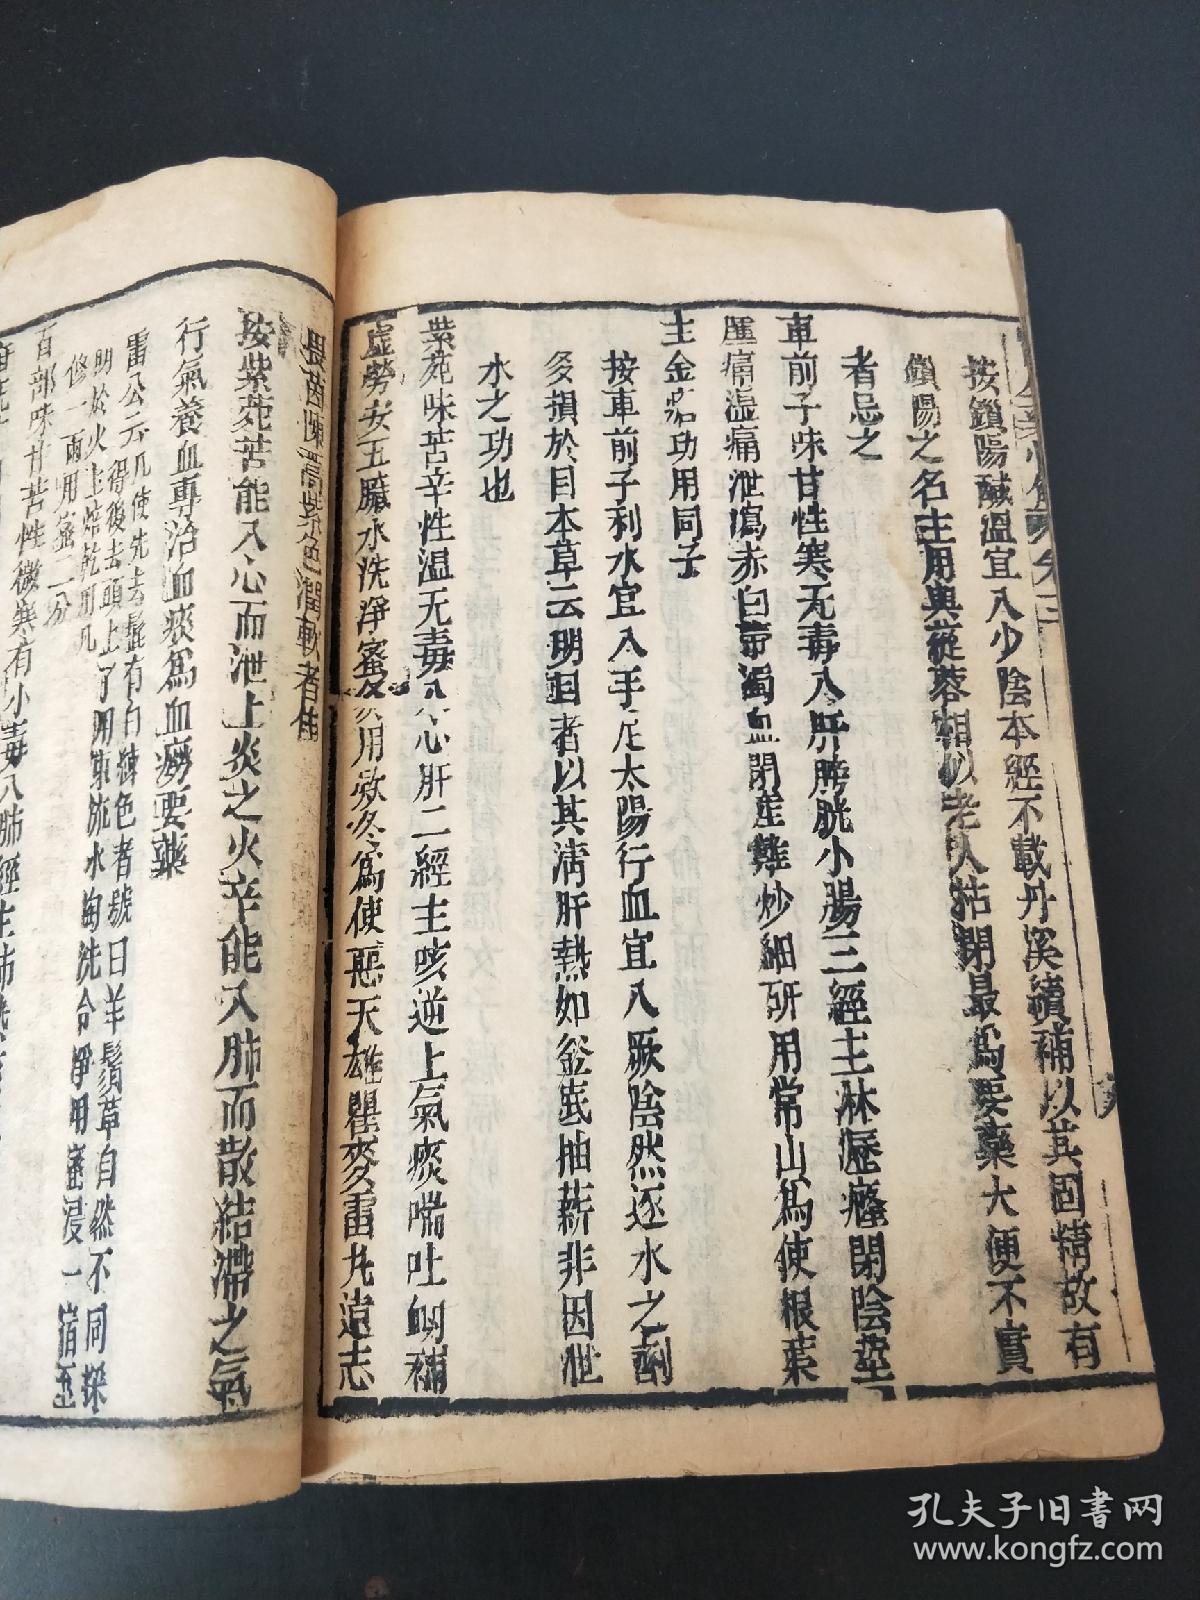 按鎖陽鹹溫宜入少陰本經不載丹溪續補以其固精故有
鎖陽之名主用與蓯蓉相似老人枯閉最為要藥大便不實
者忌之
車前子味甘性寒无毒入肝膀胱小腸三經主淋瀝癃閉陰莖
腫痛濕痛泄瀉赤白帶濁血閉產難炒細研用常山為使根葉
主金瘡功用同子
按車前子利水宜入手足太陽行血宜入厥陰然逐水之劑
多損於目本草云明目者以其清肝熱如釜底抽薪非因泄
水之功也
紫菀味苦辛性温无毒入心肝二經主咳逆上氣痰喘吐衂補
虛勞安五臟水洗淨蜜炙用欵冬為使惡天雄瞿麥雷丸遠志
畏茵陳蒿紫色潤軟者佳
按紫菀苦能入心而泄上炎之火辛能入肺而散結滯之氣
行氣養血專治血痰為血癆要藥
雷公云凡使先去髭有白練色者號曰羊鬚草自然不同採
得後去頭上了用東流水淘洗令淨用蜜浸一宿至
明於火上焙乾用凡
修一兩用蜜二分
百部味甘苦性微寒有小毒入肺經主肺
孔夫子旧書网
www.kongfz.com